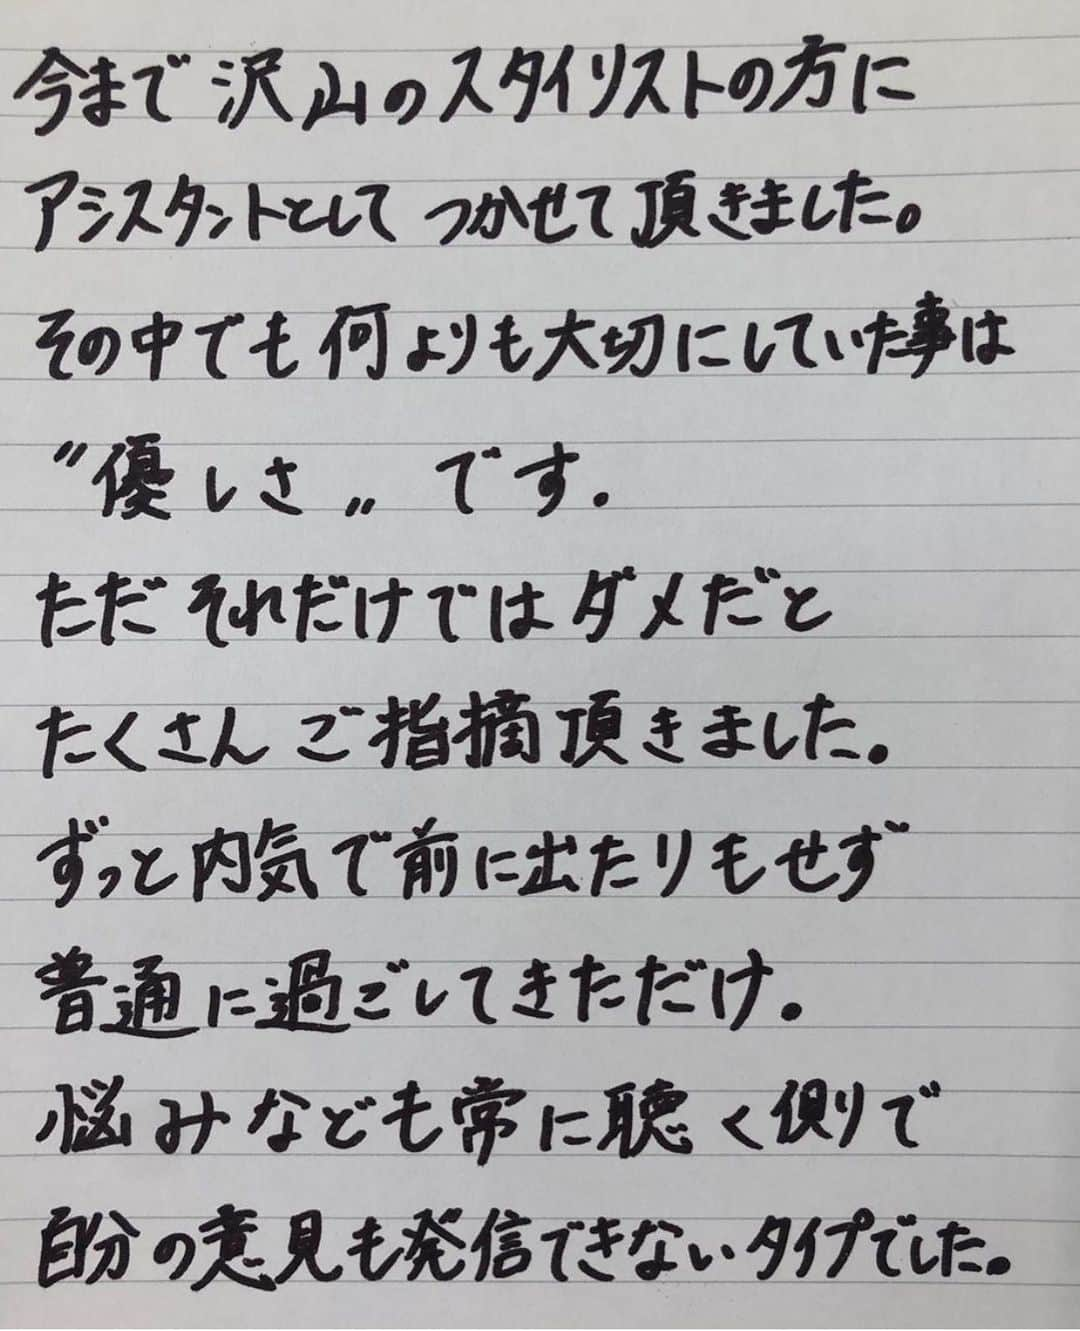 今まで沢山のスタイリストの方に
アシスタントとしてつかせて頂きました。
その中でも何よりも大切にしていた事は
〝優しさ〟です.
ただそれだけではダメだと
たくさんご指摘頂きました。
ずっと内気で前に出たりもせず
普通に過ごしてきただけ.
悩みなども常に聴く側で
自分の意見も発信できないタイプでした。